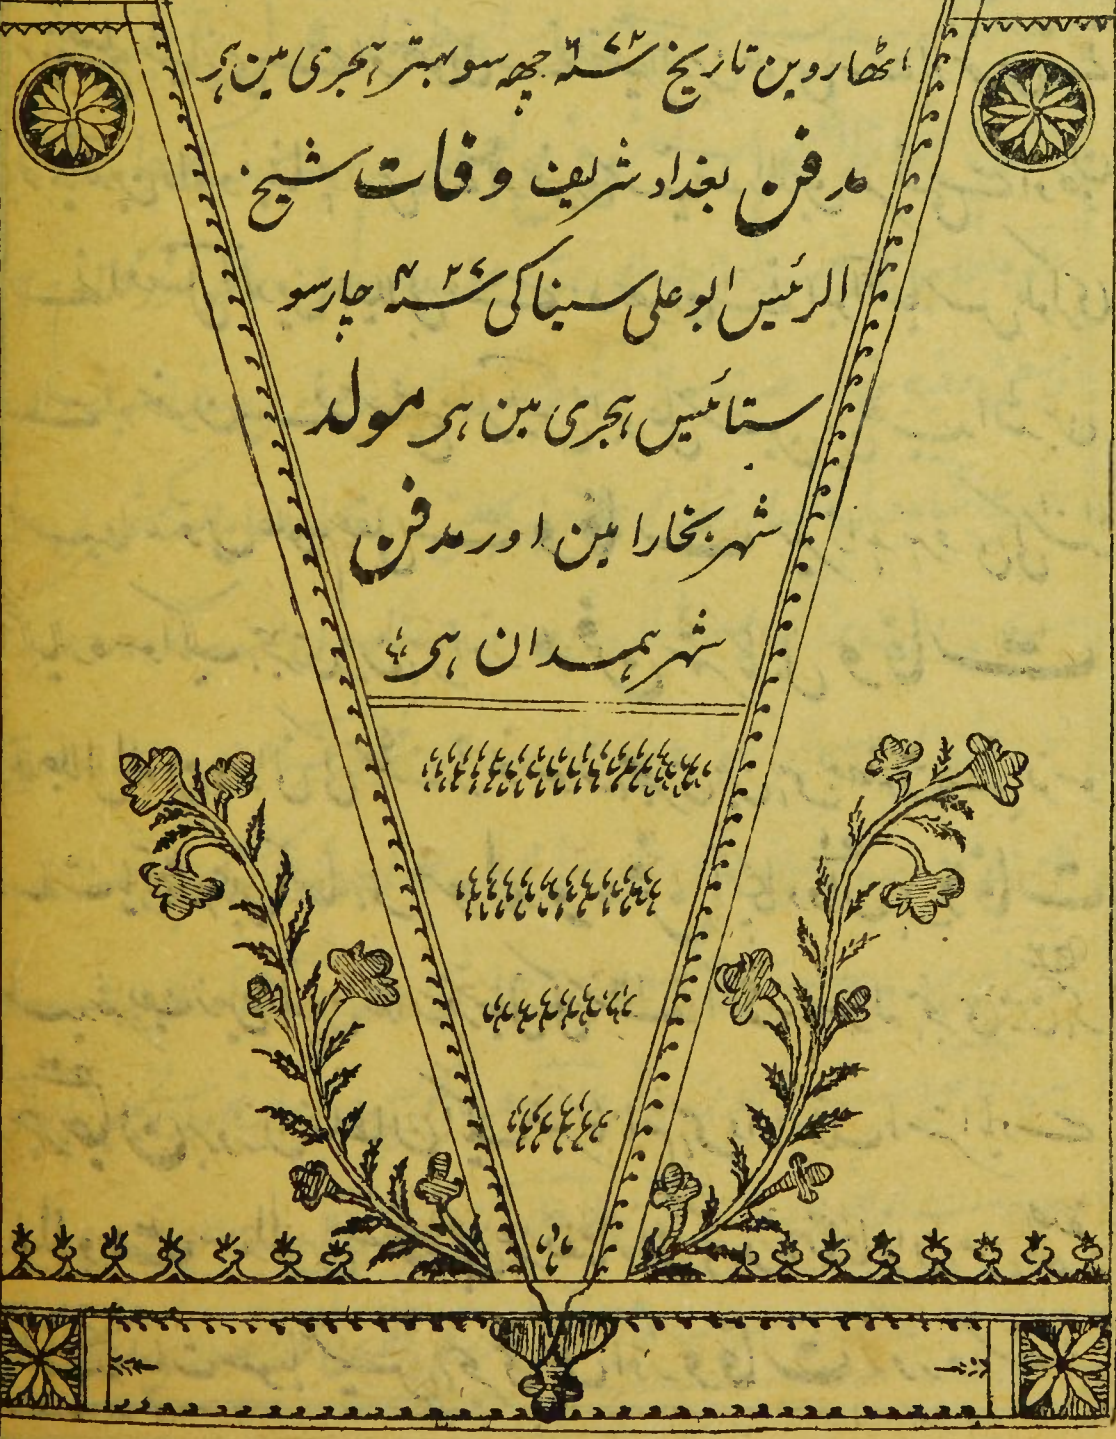 اٹھاروین تاریخ سنہ ۶۷۲ چھہ سو بہتر ہجری مین ہی
مدفن بغداد شریف وفات شیخ
الرئیس ابو علی سینا کی سنہ ۴۲۷ چار سو
ستائیس ہجری مین ہی مولد
شہر بخارا مین اور مدفن
شہر ہمدان ہی